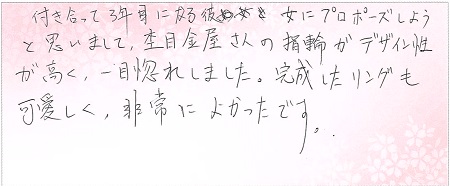 付き合って3年目になる彼女にプロポーズしよう
と思いまして、杢目金屋さんの指輪がデザイン性
が高く、一目惚れしました。完成したリングも
可愛しく、非常によかったです。